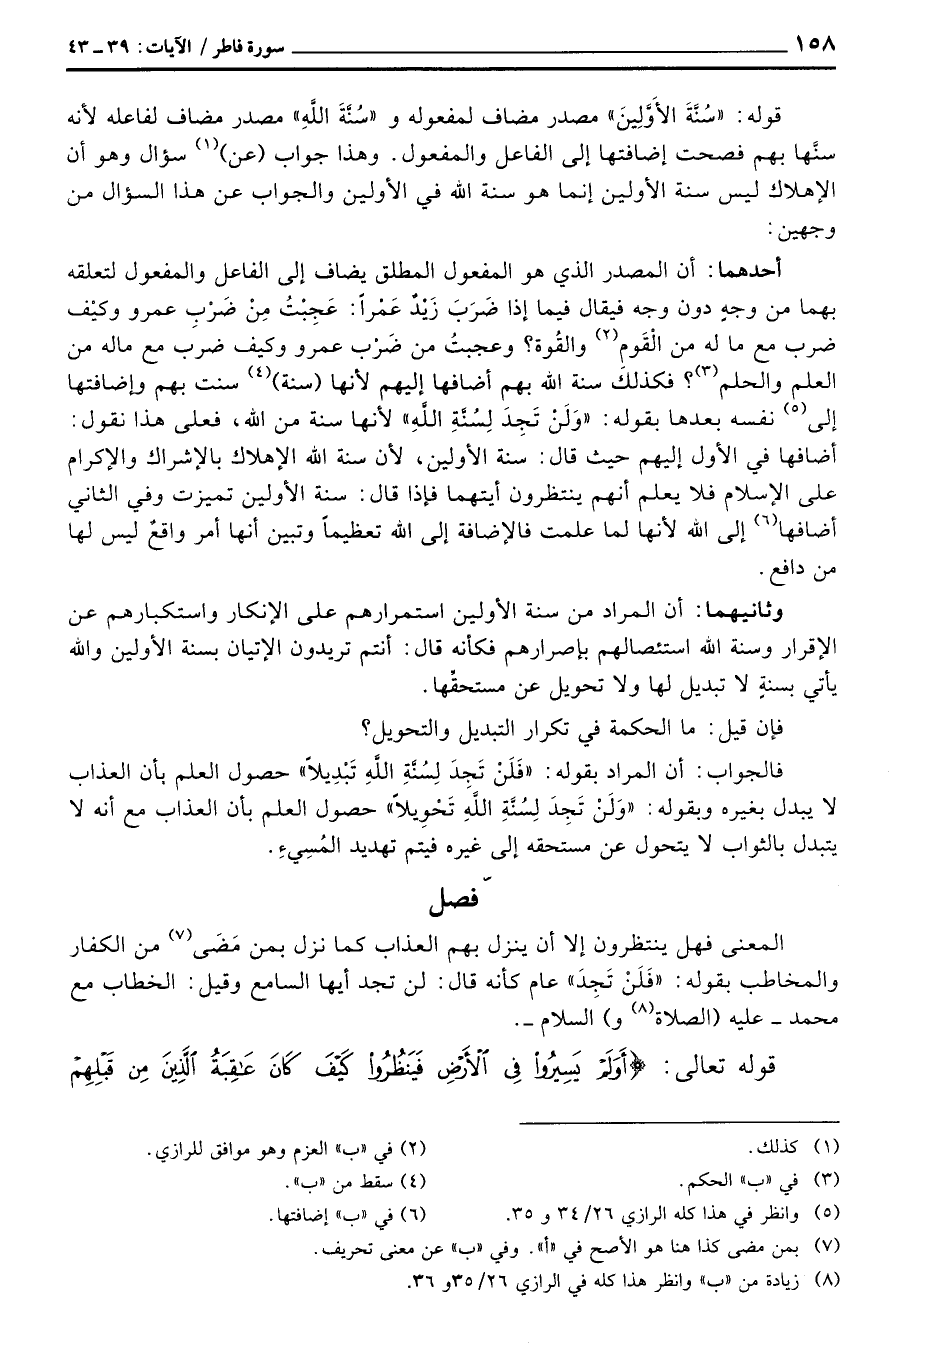 ١٥٨ سورة فاطر / الآيات: ٣٩ ـ ٤٣
قوله: «سُنَّةَ الأَوَّلِينَ» مصدر مضاف لمفعوله و «سُنَّةَ اللَّهِ» مصدر مضاف لفاعله لأنه
سنَّها بهم فصحت إضافتها إلى الفاعل والمفعول. وهذا جواب (عن)(١) سؤال وهو أن
الإهلاك ليس سنة الأولين إنما هو سنة الله في الأولين والجواب عن هذا السؤال من
وجهين:
أحدهما: أن المصدر الذي هو المفعول المطلق يضاف إلى الفاعل والمفعول لتعلقه
بهما من وجهٍ دون وجه فيقال فيما إذا ضَرَبَ زَيْدٌ عَمْراً: عَجِبْتُ مِنْ ضَرْبِ عمرو وكيْف
ضرب مع ما له من الْقَوم(٢) والقُوة؟ وعجبتُ من ضَرْب عمرو وكيف ضرب مع ماله من
العلم والحلم(٣)؟ فكذلكَ سنة الله بهم أضافها إليهم لأنها (سنة)(٤) سنت بهم وإضافتها
إلى(٥) نفسه بعدها بقوله: «وَلَنْ تَجِدَ لِسُنَّةِ اللَّهِ» لأنها سنة من الله، فعلى هذا نقول:
أضافها في الأول إليهم حيث قال: سنة الأولين، لأن سنة الله الإهلاك بالإشراك والإكرام
على الإسلام فلا يعلم أنهم ينتظرون أيتهما فإذا قال: سنة الأولين تميزت وفي الثاني
أضافها(٦) إلى الله لأنها لما علمت فالإضافة إلى الله تعظيماً وتبين أنها أمر واقعٌ ليس لها
من دافع.
وثانيهما: أن المراد من سنة الأولين استمرارهم على الإنكار واستكبارهم عن
الإقرار وسنة الله استئصالهم بإصرارهم فكأنه قال: أنتم تريدون الإتيان بسنة الأولين والله
يأتي بسنةٍ لا تبديل لها ولا تحويل عن مستحقِّها.
فإن قيل: ما الحكمة في تكرار التبديل والتحويل؟
فالجواب: أن المراد بقوله: «فَلَنْ تَجِدَ لِسُنَّةِ اللَّهِ تَبْدِيلاً» حصول العلم بأن العذاب
لا يبدل بغيره وبقوله: «وَلَنْ تَجِدَ لِسُنَّةِ اللَّهِ تَحْوِيلاً» حصول العلم بأن العذاب مع أنه لا
يتبدل بالثواب لا يتحول عن مستحقه إلى غيره فيتم تهديد المُسِيءِ.
فصل
المعنى فهل ينتظرون إلا أن ينزل بهم العذاب كما نزل بمن مَضَى(٧) من الكفار
والمخاطب بقوله: «فَلَنْ تَجِدَ» عام كأنه قال: لن تجد أيها السامع وقيل: الخطاب مع
محمد ـ عليه (الصلاة(٨) و) السلام ـ.
قوله تعالى: ﴿أَوَلَمْ يَسِيرُوا۟ فِى ٱلْأَرْضِ فَيَنظُرُوا۟ كَيْفَ كَانَ عَـٰقِبَةُ ٱلَّذِينَ مِن قَبْلِهِمْ
(١) كذلك. (٢) في «ب» العزم وهو موافق للرازي.
(٣) في «ب» الحكم. (٤) سقط من «ب».
(٥) وانظر في هذا كله الرازي ٣٤/٢٦ و ٣٥. (٦) في «ب» إضافتها.
(٧) بمن مضى كذا هنا هو الأصح في «أ». وفي «ب» عن معنى تحريف.
(٨) زيادة من «ب» وانظر هذا كله في الرازي ٣٥/٢٦و ٣٦.